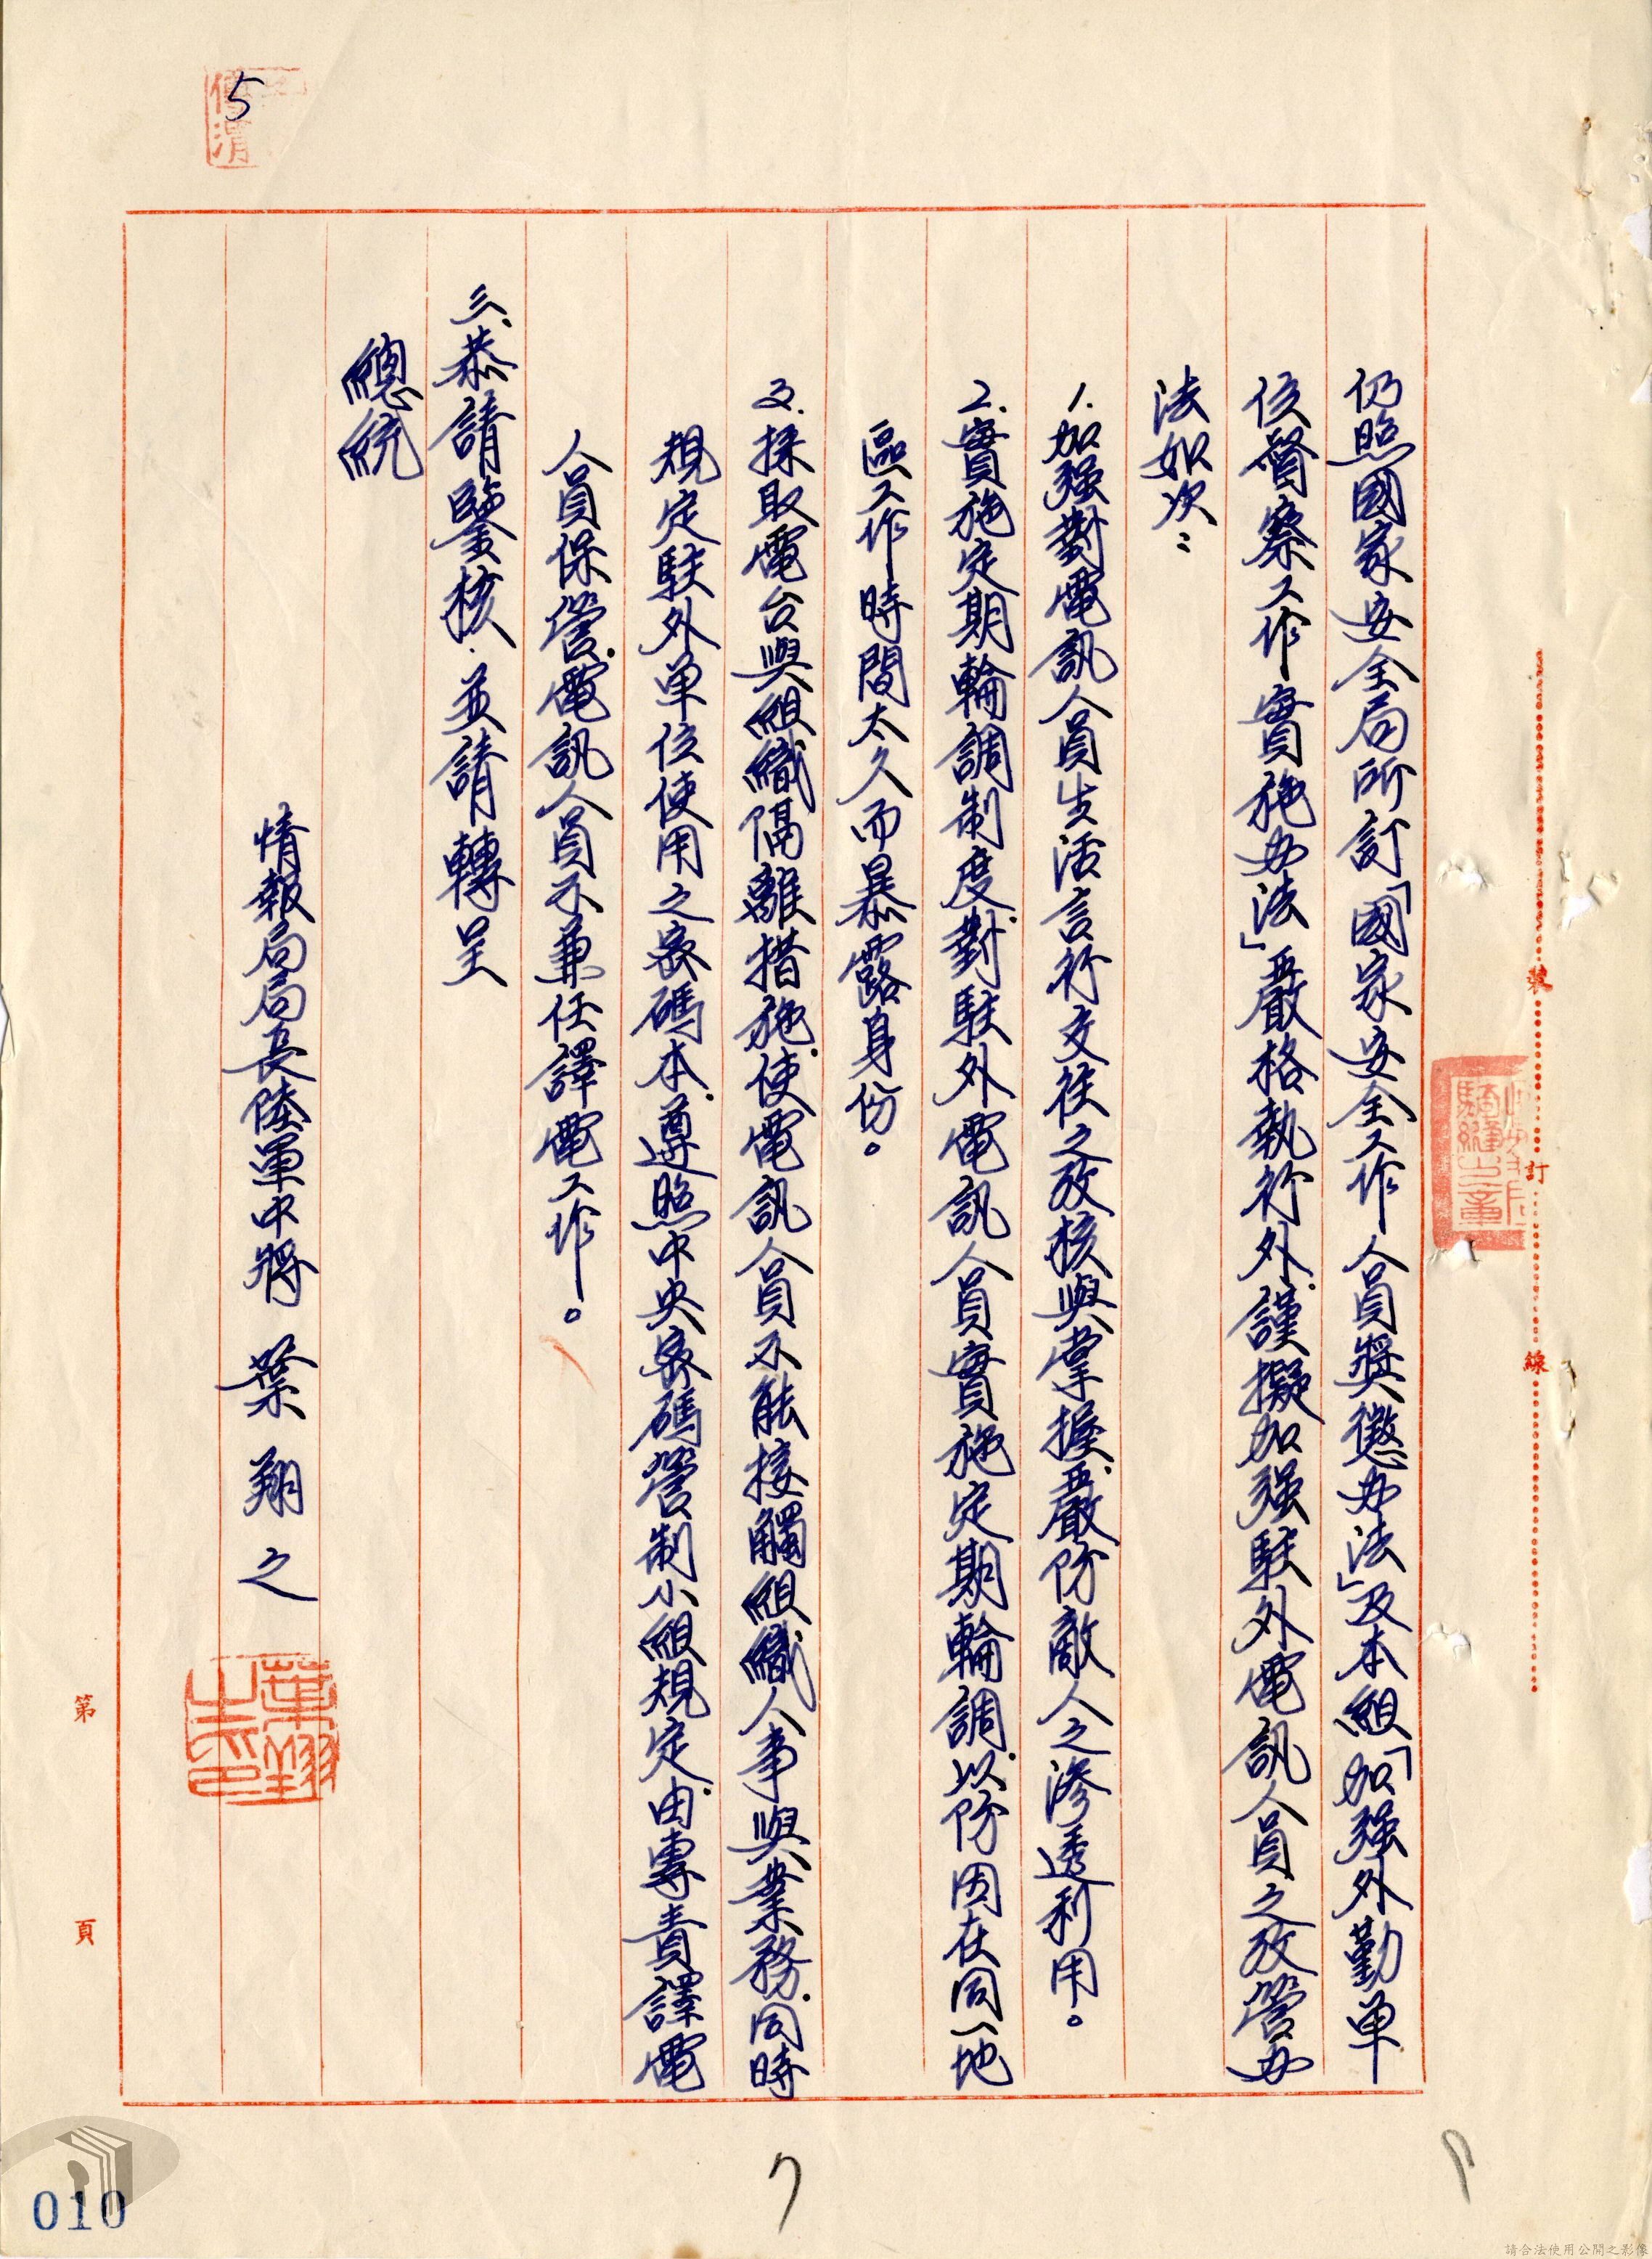 5
仍照國家安全局所訂「國家安全工作人員獎懲办法」及本組「加强外勤单
位督察工作實施办法」嚴格執行外.謹擬加强駐外電訊人員之攷管办
法如次:
1.加强對電訊人員生活言行交往之攷核與掌握.嚴防敵人之滲透利用。
2.實施定期輪調制度.對駐外電訊人員實施定期輪調.以防因在同一地
區工作時間太久而暴露身份。
3.採取電台與組織隔離措施.使電訊人員不能接觸組織人事與業務.同時
規定駐外单位使用之密碼本.遵照中央密碼管制小組規定.由專責譯電
人員保管.電訊人員不兼任譯電工作。
三.恭請鑒核.並請轉呈
總統
情報局局長陸軍中將 葉翔之
葉翔之印
裝
訂
線
騎縫之章
第 頁
7
010
請合法使用公開之影像